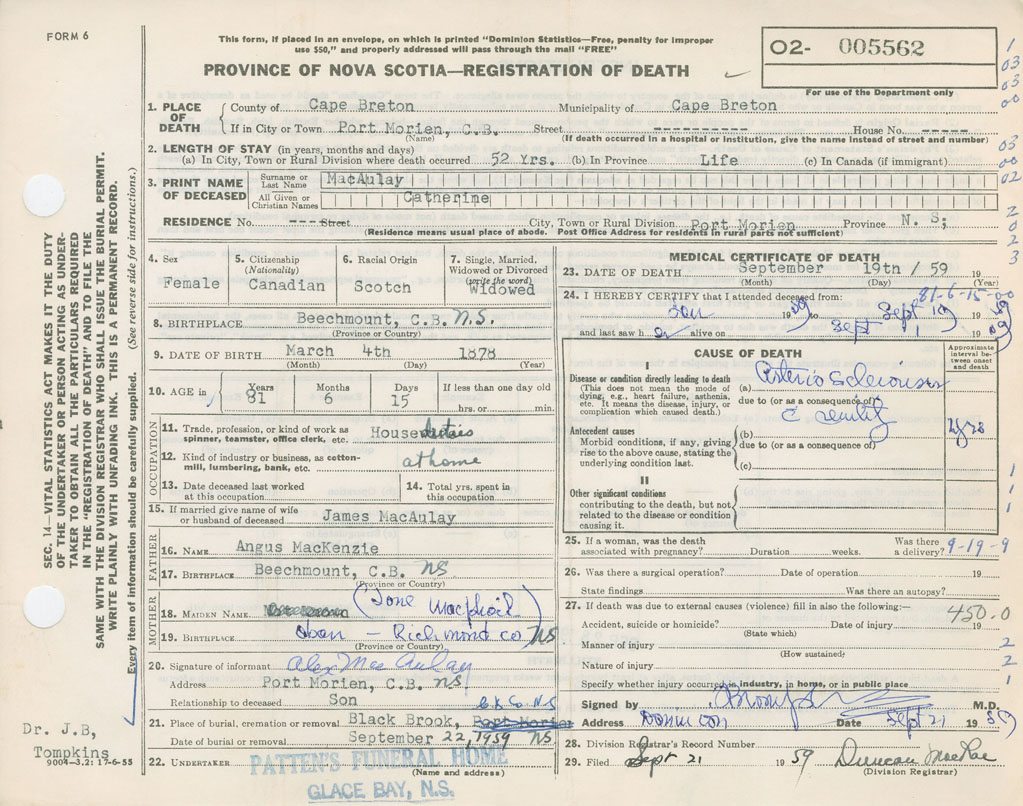 FORM 6
This form, if placed in an envelope, on which is printed "Dominion Statistics—Free, penalty for improper
use $50," and properly addressed will pass through the mail "FREE"
PROVINCE OF NOVA SCOTIA—REGISTRATION OF DEATH
O2- 005562
For use of the Department only
1
03
03
00
03
00
02
2
0
2
3
1. PLACE OF DEATH
County of Cape Breton Municipality of Cape Breton
If in City or Town Port Morien, C.B. Street ---------- House No. -----
(Name) (If death occurred in a hospital or institution, give the name instead of street and number)
2. LENGTH OF STAY (in years, months and days)
(a) In City, Town or Rural Division where death occurred 52 Yrs. (b) In Province Life (c) In Canada (if immigrant)
3. PRINT NAME OF DECEASED
Surname or Last Name MacAulay
All Given or Christian Names Catherine
RESIDENCE No. --- Street City, Town or Rural Division Port Morien Province N. S;
(Residence means usual place of abode. Post Office Address for residents in rural parts not sufficient)
4. Sex Female
5. Citizenship (Nationality) Canadian
6. Racial Origin Scotch
7. Single, Married, Widowed or Divorced (write the word) Widowed
8. BIRTHPLACE Beechmount, C.B. N.S.
(Province or Country)
9. DATE OF BIRTH March 4th 1878
(Month) (Day) (Year)
10. AGE in Years 81 Months 6 Days 15 If less than one day old
hrs. or min.
OCCUPATION
11. Trade, profession or kind of work as spinner, teamster, office clerk, etc. House duties
12. Kind of industry or business, as cotton-mill, lumbering, bank, etc. at home
13. Date deceased last worked at this occupation
14. Total yrs. spent in this occupation
15. If married give name of wife or husband of deceased James MacAulay
FATHER
16. NAME Angus MacKenzie
17. BIRTHPLACE Beechmount, C.B. NS
(Province or Country)
MOTHER
18. MAIDEN NAME (Jone MacPhail)
19. BIRTHPLACE Loan — Richmond Co NS
(Province or Country)
20. Signature of informant Alex MacAulay
Address Port Morien, C.B. NS
Relationship to deceased Son
C.B. Co. N.S
21. Place of burial, cremation or removal Black Brook, Port Morien
Date of burial or removal September 22, 1959 NS
22. UNDERTAKER PATTEN'S FUNERAL HOME
(Name and address)
GLACE BAY, N.S.
MEDICAL CERTIFICATE OF DEATH
23. DATE OF DEATH September 19th / 59 19
(Month) (Day) (Year)
81-6-15-00
24. I HEREBY CERTIFY that I attended deceased from:
Jan 1959 to Sept 19 1959
and last saw h er alive on Sept 1 1959
CAUSE OF DEATH
Approximate interval between onset and death
I
Disease or condition directly leading to death
(This does not mean the mode of dying, e.g., heart failure, asthenia, etc. It means the disease, injury, or complication which caused death.)
(a) Arterio Sclerosis
due to (or as a consequence of)
c Senility
Antecedent causes
Morbid conditions, if any, giving rise to the above cause, stating the underlying condition last.
(b) yrs
due to (or as a consequence of)
(c)
II
Other significant conditions contributing to the death, but not related to the disease or condition causing it.
1
1
1
25. If a woman, was the death associated with pregnancy? Duration weeks. Was there a delivery? 9-19-9
26. Was there a surgical operation? Date of operation 19
State findings Was there an autopsy?
27. If death was due to external causes (violence) fill in also the following:—
450.0
Accident, suicide or homicide? Date 19
(State which)
Manner of injury 2
(How sustained)
Nature of injury 2
Specify whether injury occurred in industry, in home, or in public place 1
Signed by M.D.
Address Dominion Date Sept 21 1959
28. Division Registrar's Record Number
29. Filed Sept 21 1959 Duncan MacRae
(Division Registrar)
SEC. 14—VITAL STATISTICS ACT MAKES IT THE DUTY
OF THE UNDERTAKER OR PERSON ACTING AS UNDER-
TAKER TO OBTAIN ALL THE PARTICULARS REQUIRED
IN THE "REGISTRATION OF DEATH" AND TO FILE THE
SAME WITH THE DIVISION REGISTRAR WHO SHALL ISSUE THE BURIAL PERMIT.
WRITE PLAINLY WITH UNFADING INK. THIS IS A PERMANENT RECORD.
Every item of information should be carefully supplied. (See reverse side for instructions.)
Dr. J.B,
Tompkins
9004-3,2: 17-6-55